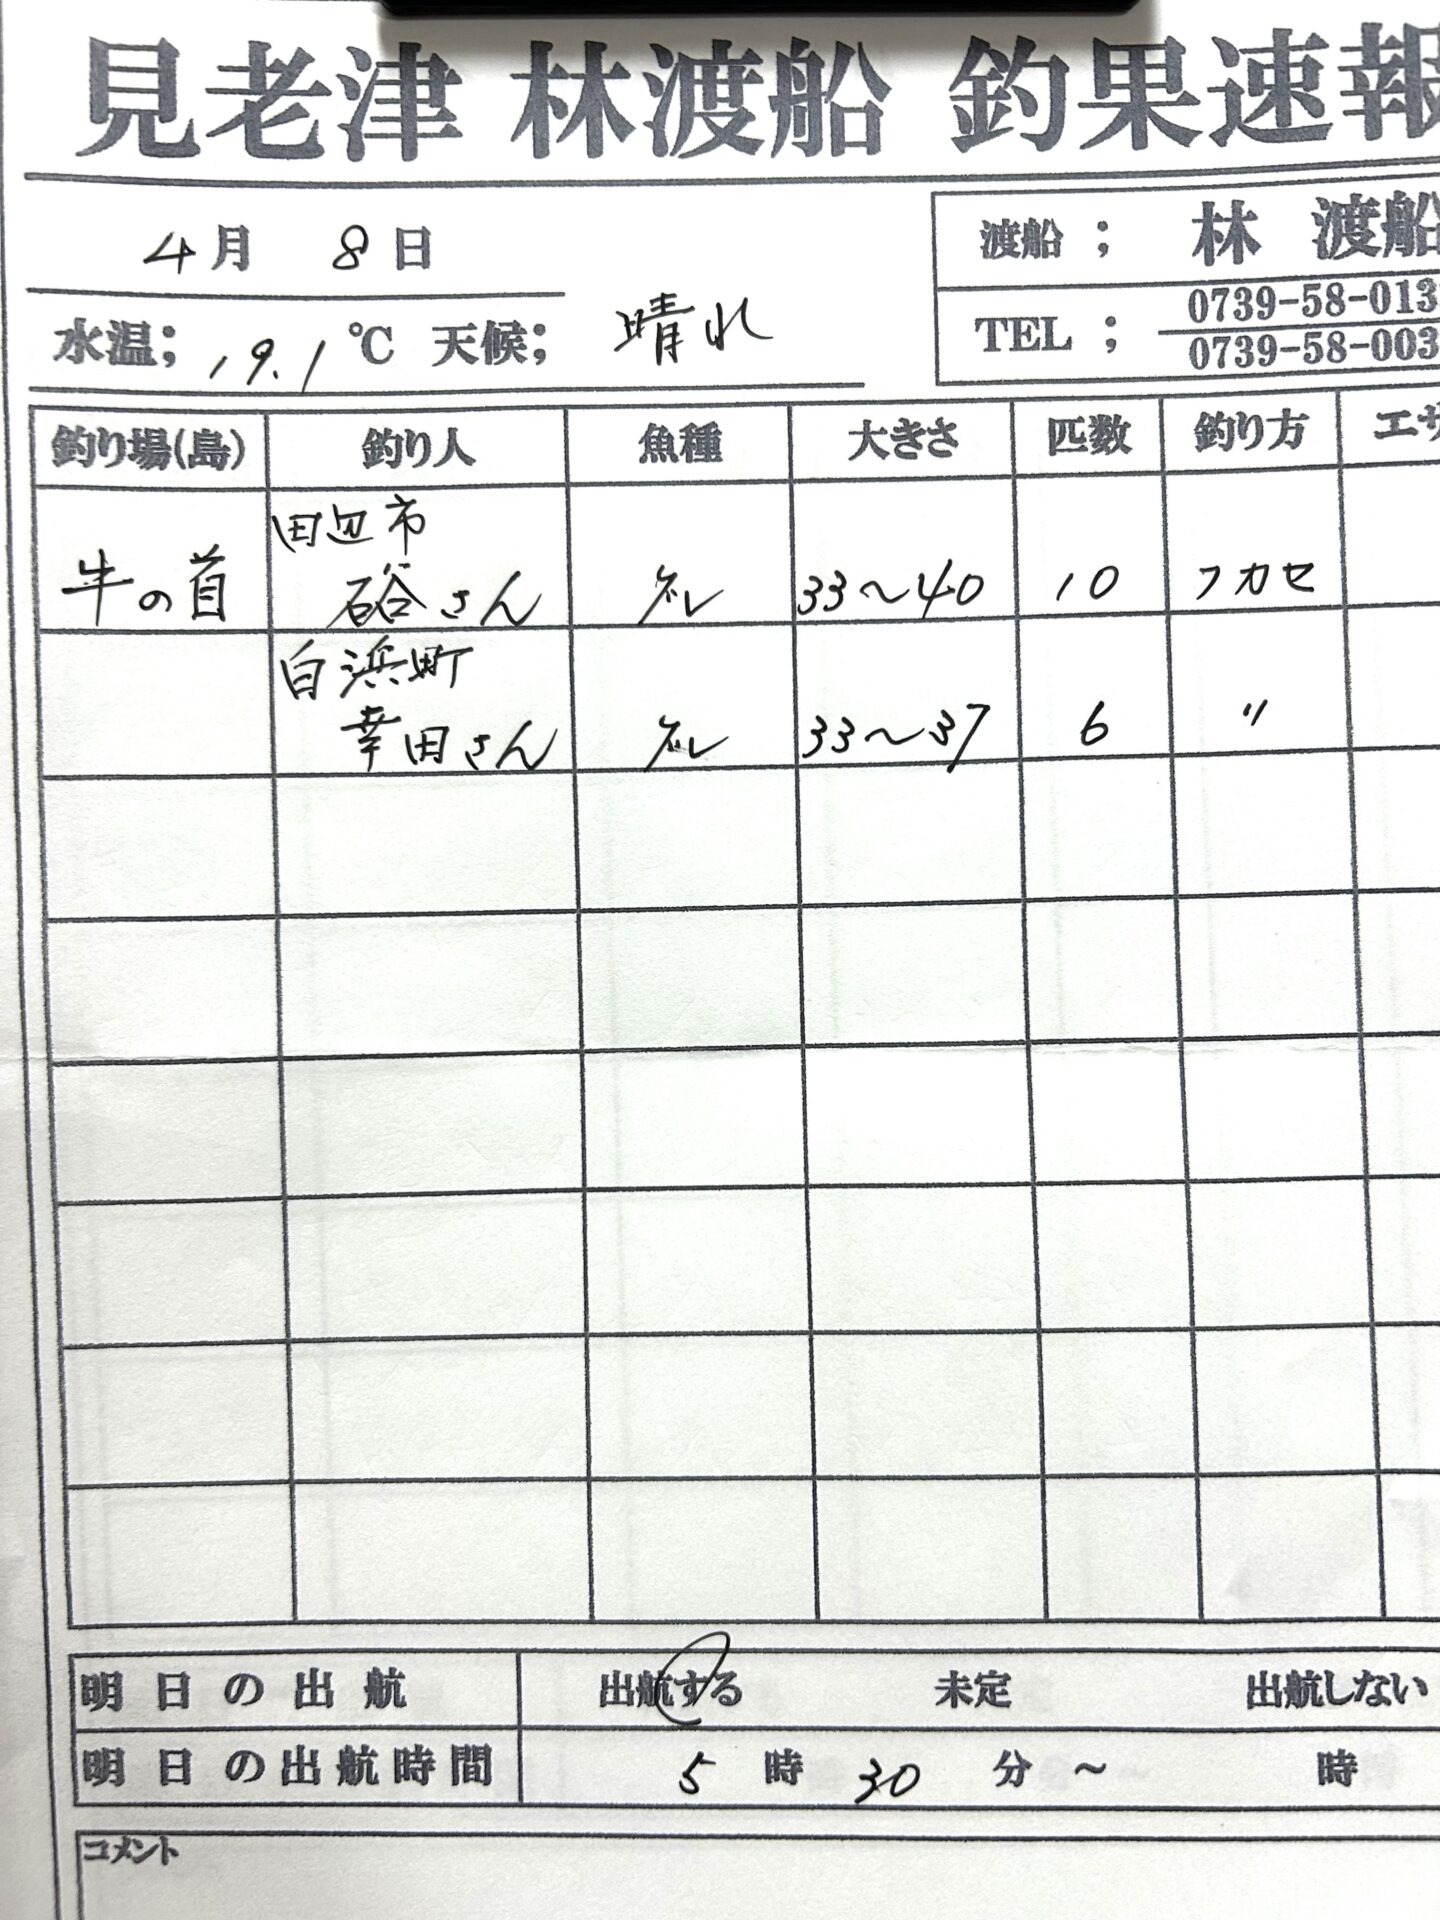 見老津 林渡船 釣果速報
4月 8日
渡船 ; 林 渡船
水温; 19.1 ℃ 天候; 晴れ
TEL ; 0739-58-013
0739-58-003
釣り場(島) 釣り人 魚種 大きさ 匹数 釣り方 エサ
田辺市
牛の首 硲さん グレ 33〜40 10 フカセ
白浜町
幸田さん グレ 33〜37 6 〃
明日の出航 出航する 未定 出航しない
明日の出航時間 5 時 30 分 ~ 時
コメント